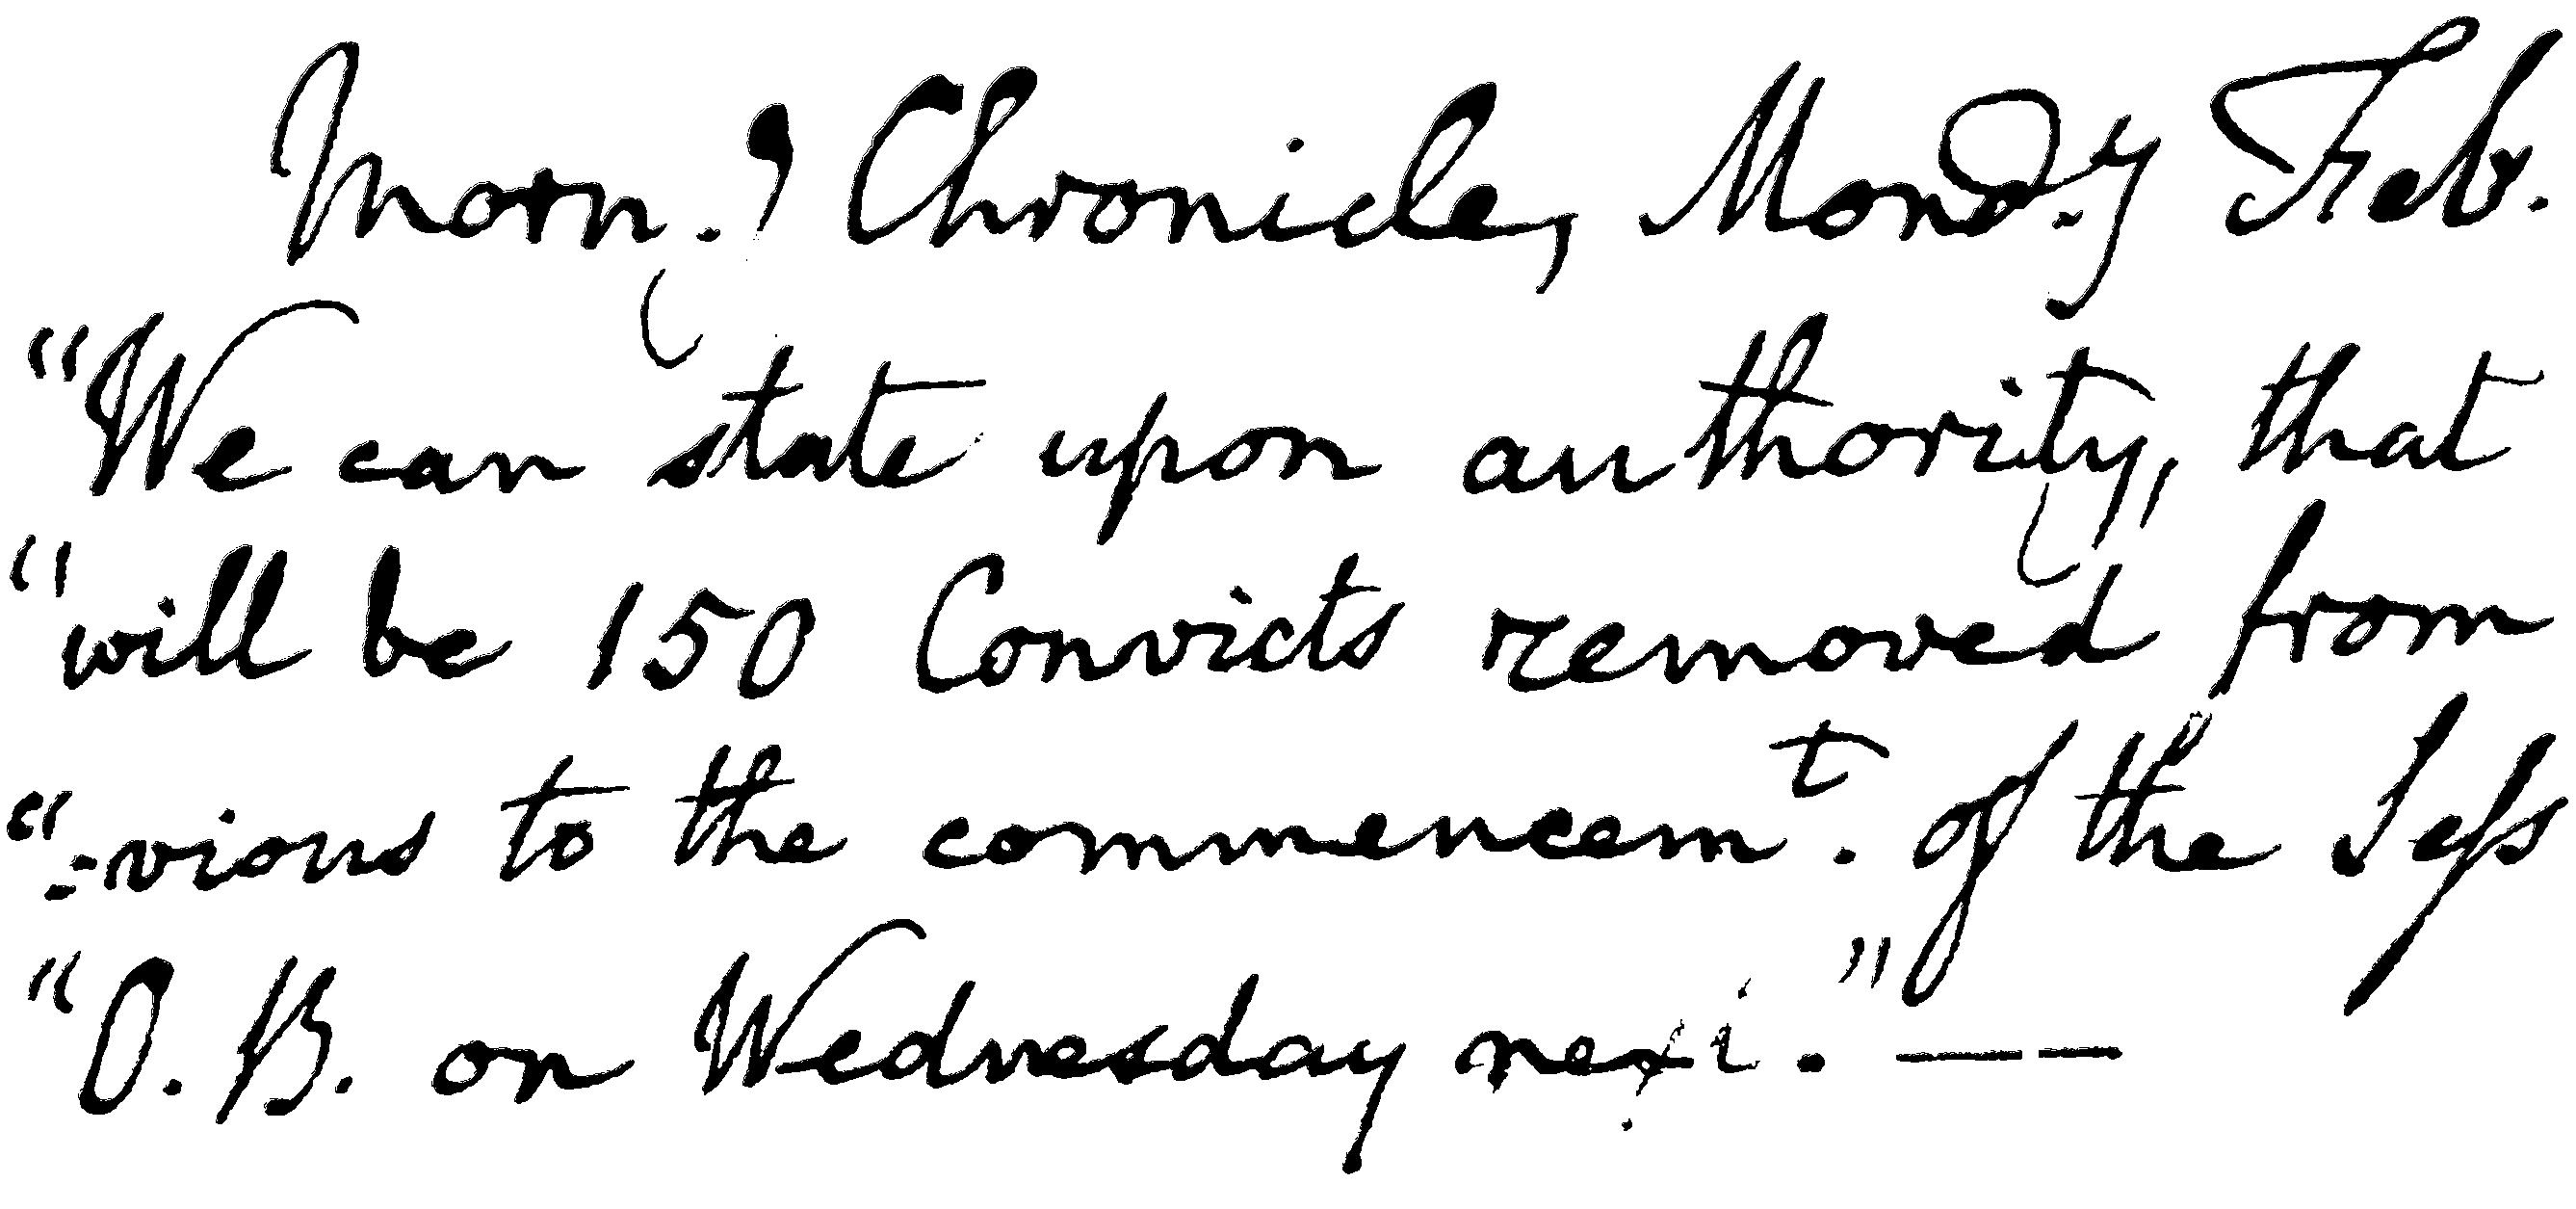 Morn.g Chronicle, Mond.y Feb.
"We can state upon authority, that
"will be 150 Convicts removed from
"=vious to the commencem.t of the Sess
"O. B. on Wednesday next." ——